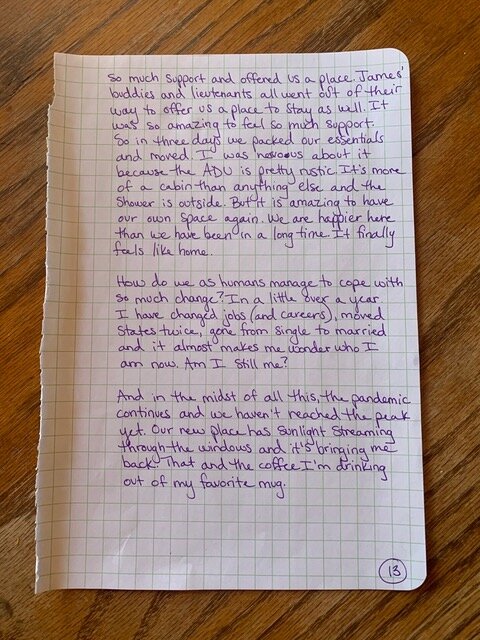 so much support and offered us a place. James'
buddies and lieutenants all went out of their
way to offer us a place to stay as well. It
was so amazing to feel so much support.
So in three days we packed our essentials
and moved. I was nervous about it
because the ADU is pretty rustic. It's more
of a cabin than anything else and the
shower is outside. But it is amazing to have
our own space again. We are happier here
than we have been in a long time. It finally
feels like home.
How do we as humans manage to cope with
so much change? In a little over a year
I have changed jobs (and careers), moved
states twice, gone from single to married
and it almost makes me wonder who I
am now. Am I still me?
And in the midst of all this, the pandemic
continues and we haven't reached the peak
yet. Our new place has sunlight streaming
through the windows and it's bringing me
back. That and the coffee I'm drinking
out of my favorite mug.
13